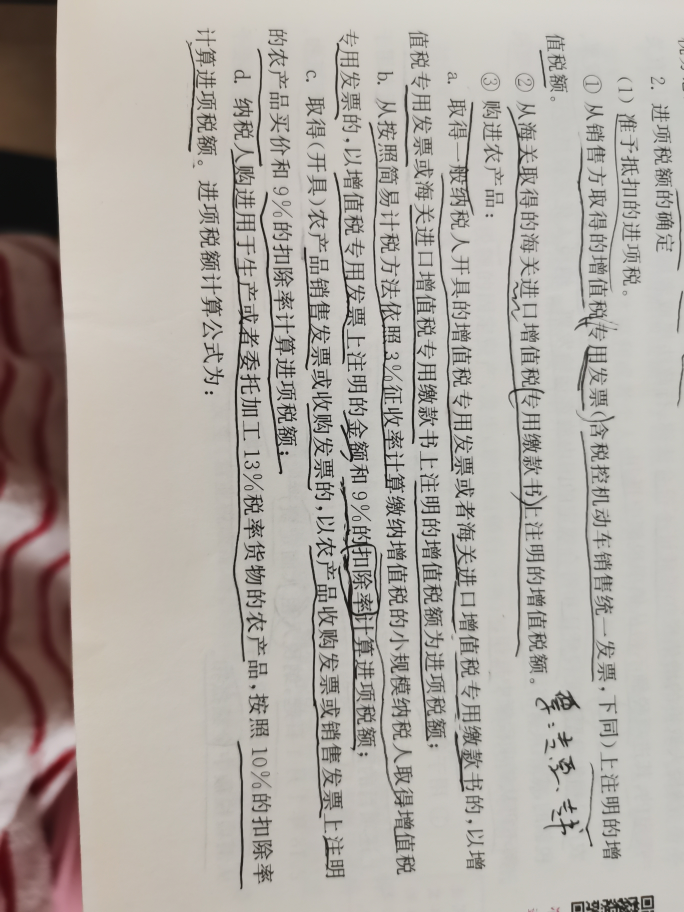 2. 进项税额的确定
(1) 准予抵扣的进项税。
① 从销售方取得的增值税专用发票(含税控机动车销售统一发票，下同)上注明的增
值税额。
② 从海关取得的海关进口增值税专用缴款书上注明的增值税额。
③ 购进农产品：
a. 取得一般纳税人开具的增值税专用发票或者海关进口增值税专用缴款书的，以增
值税专用发票或海关进口增值税专用缴款书上注明的增值税额为进项税额；
b. 从按照简易计税方法依照3%征收率计算缴纳增值税的小规模纳税人取得增值税
专用发票的，以增值税专用发票上注明的金额和9%的扣除率计算进项税额；
c. 取得(开具)农产品销售发票或收购发票的，以农产品收购发票或销售发票上注明
的农产品买价和9%的扣除率计算进项税额；
d. 纳税人购进用于生产或者委托加工13%税率货物的农产品，按照10%的扣除率
计算进项税额。进项税额计算公式为：